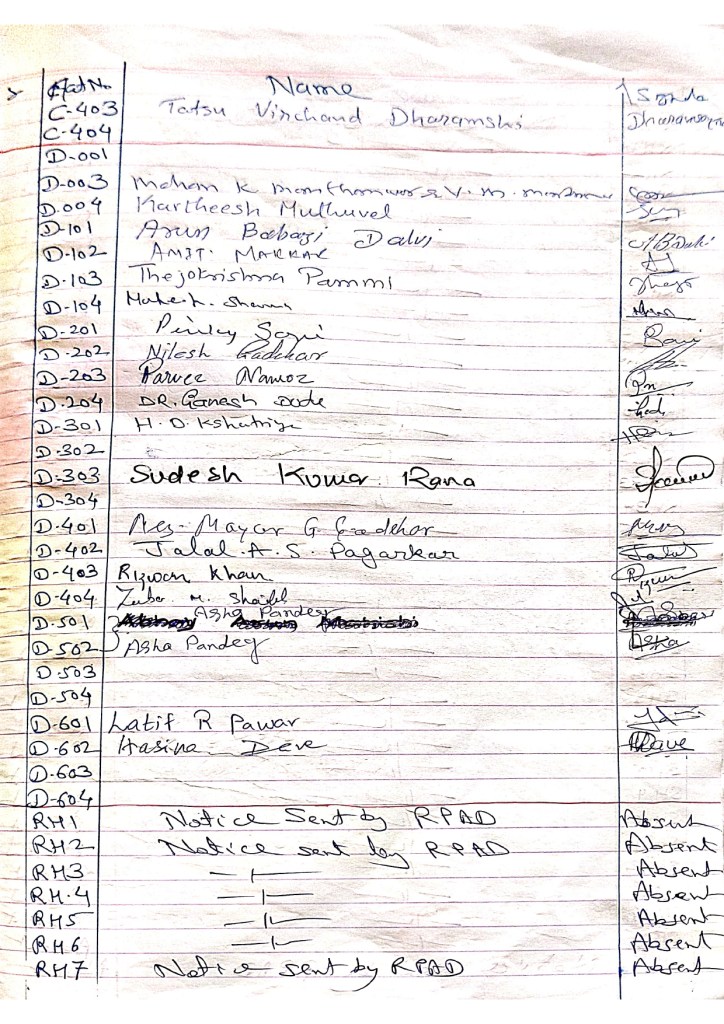 Flat No Name
C-403 Tatsu Virchand Dharamshi
C-404
D-001
D-003 Mohan K
D.004 Kartheesh Muthuvel
D-101 Arun Babaji Dalvi ABDalvi
D-102 AMIT. MAKKAR
D-103 Thejokrishna Pammi
D-104 Mahesh. Sharma
D-201 Pinky Soni
D-202 Nilesh Gadekar
D-203 Parvez Namoz
D.204 DR. Ganesh
D-301 H.D. Kshatriya
D-302
D-303 Sudesh Kumar Rana
D-304
D.401 Mayar G
D-402 Jalal.A.S. Pagarkar Jalal
D-403 Rizwan Khan
D-404 Zuber M. Shaikh
D-501 Asha Pandey
D-502 Asha Pandey Asha
D-503
D-504
D-601 Latif R Pawar
D-602 Hasina Dave HDave
D-603
D-604
RH1 Notice Sent by RPAD Absent
RH2 Notice sent by RPAD Absent
RH3 —ı— Absent
RH.4 —ı— Absent
RH5 —ıı— Absent
RH6 —ı— Absent
RH7 Notice sent by RPAD Absent